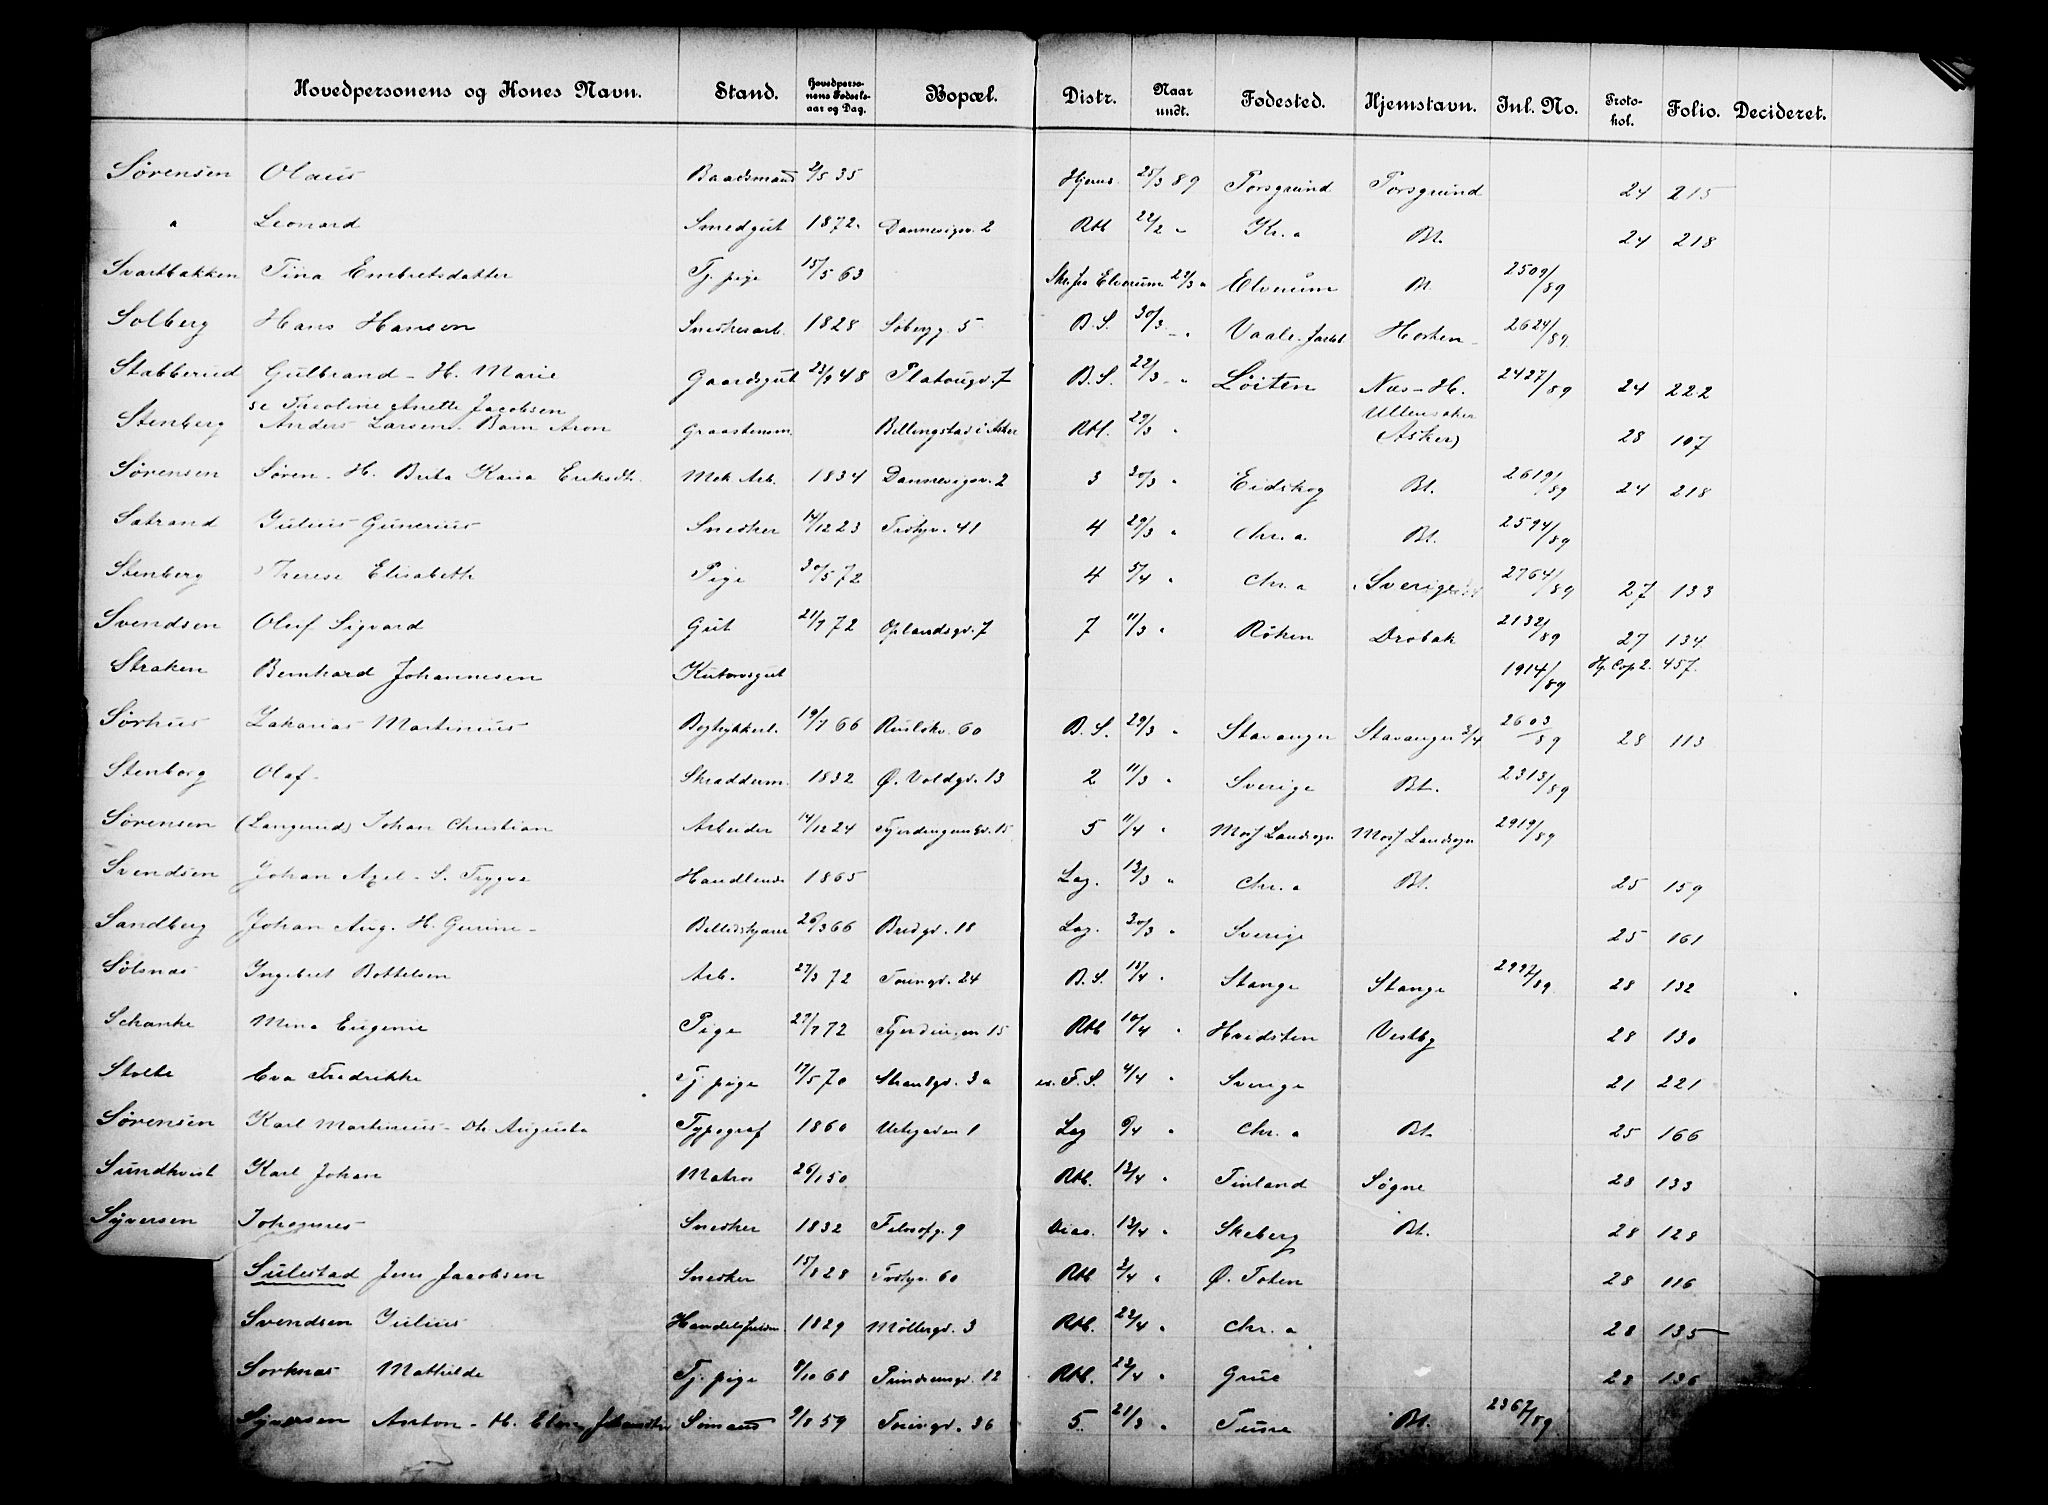 Hovedpersonens og Kones Navn. Stand. Hovedperso-nens Fødsels-aar og Dag. Bopæl. Distr. Naar undt. Fødested. Hjemstavn. Inl. No. Proto-kol. Folio. Decideret.
Sørensen Olaus Baadsmand 2/5 35 Hjems. 25/3 89 Porsgrund Porsgrund 24 215
" Leonard Smedgut 1872. Dannevigsv. 2 Rbl 22/2 " Kr.a Bt. 24 218
Svartbakken Tina Embretsdatter Tj. pige 15/5 63 Skr. fra Elverum " Elverum Bt. 2509/89
Solberg Hans Hansen Snedkerarb. 1828 Søbergg. 5 B. S. 30/3 " Vaale Jarlsb Hosken 2624/89
Stabberud Gulbrand - H. Marie Gaardsgut 48 Platougd. 7 B. S. 22/3 " Løiten Næs - H. 2427/89 24 222
se Theoline Anette Jacobsen Ullensaker
Stenberg Anders Larsen. Barn Aron Graastensm. Billingstad i Asker Rbl. 29/3 " (Asker) 28 107
Sørensen Søren - H. Brita Kaisa Eriksdtr. Mek Arb. 1834 Dannevigsv. 2 3 30/3 " Eidskog Bt. 2619/89 24 218
Satrand Julius Gunerius Snedker 14/12 23 Trdhjv. 41 4 29/3 " Chr.a Bt. 2594/89
Stenberg Therese Elisabeth Pige 30/5 72 4 5/4 " Chr.a Sverige 2764/89 27 133
Svendsen Oluf Sigvard Gut 21/9 72 Oplandsgd. 7 7 11/3 " Røken Drøbak 2132/89 27 134
Straken Bernhard Johannesen 1914/89 Hj. Cop 2. 457.
Sørhus Zakarias Martinius Bogtrykkerl. 19/7 66 Rusløkv. 60 B. S. 29/3 " Stavanger Stavanger 3/4 2603/89 28 113
Stenborg Olaf Skradderm. 1832 Ø. Voldgd. 13 2 11/3 " Sverige Bt. 2313/89
Sørensen (Langerud) Johan Christian Arbeider 14/12 24 Fjerdingengd. 15 5 11/4 " Moss Landsogn Moss Landsogn 2919/89
Svendsen Johan Axel - S. Trygve Handlende 1865 Lag. 13/3 " Chr.a Bt. 25 159
Sandberg Johan Aug. H. Gurine - Billedskjærer 26/3 66 Bredgd. 18 Lag. 30/3 " Sverige 25 161
Sølsnæs Ingebret Bottelsen Arb. 27/3 72 Torvgd. 24 B. S. 15/4 " Stange Stange 2997/89 28 132
Schanke Mina Eugenie Pige 27/7 72 Fjerdingen 15 Rbl 10/4 " Hvidsten Vestby 28 130
Stolte Eva Fredrikke Tj. pige 17/5 70 Strandgd. 3a F. S. 4/4 " Sverige 21 221
Sørensen Karl Martinius - Dtr Augusta Typograf 1860 Urtegaden 1 Lag 6/4 " Chr.a Bt. 25 166
Sundkvist Karl Johan Matros 26/1 50 Rbl. 12/4 " Finland Søgne 28 133
Syversen Johannes Snedker 1832 Filosofg. 9 13/4 " Skeberg Bt. 28 128
Sulestad Jens Jacobsen Snedker 15/8 28 Trdhjv. 60 Rbl 2/4 " Ø. Toten 28 116
Svendsen Julius 1829 Møllergd. 3 Rbl. 22/4 " Chr.a 28 135
Sorknæs Mathilde Tj. pige 8/10 68 12 Rbl. 23/4 " Grue 28 136
Syversen Anton - H. Sømand 9/8 59 Torvgd. 36 5 21/3 " Tune Bt. 2367/89